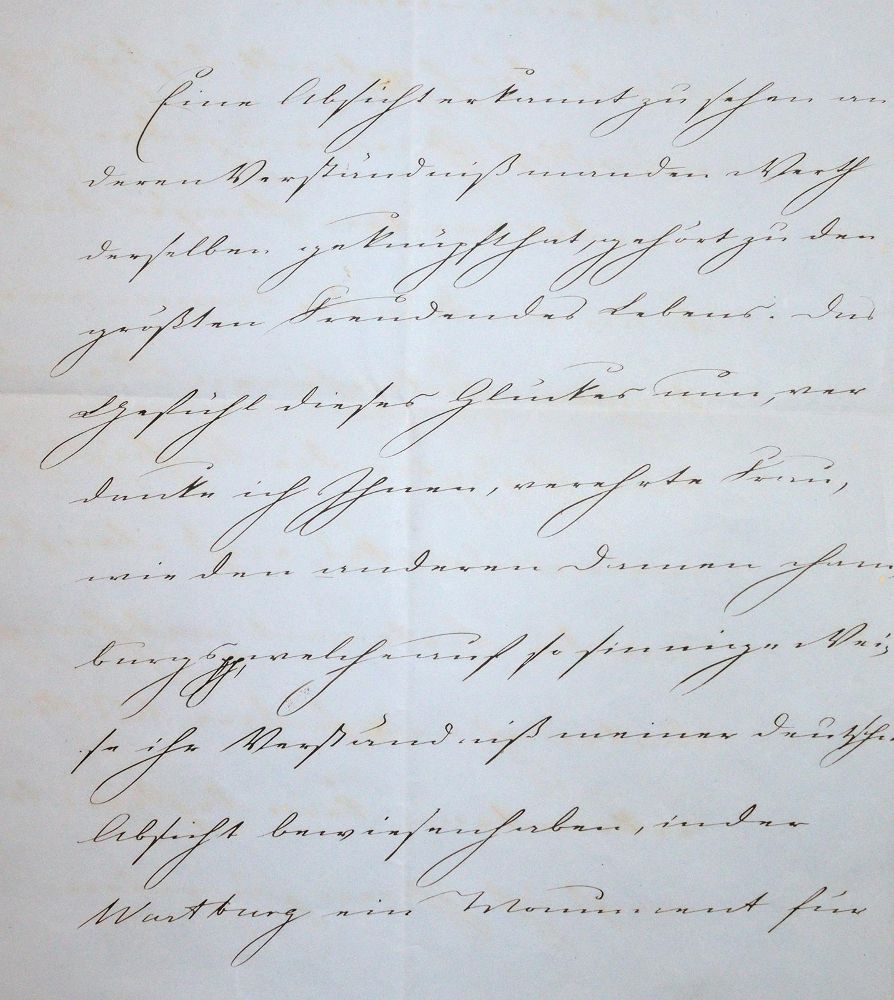 Eine Absicht erkannt zu sehen an
deren Verständniß man den Werth
derselben geknüpft hat, gehört zu den
größten Freuden des Lebens. Das
Gefühl dieses Glückes nun, ver
danke ich Ihnen, verehrte Frau,
wie den anderen Damen Ham
burgs pp, welche auf so sinnige Wei-
se ihr Verständniß meiner deutschen
Absicht bewiesen haben, in der
Wartburg ein Monument für